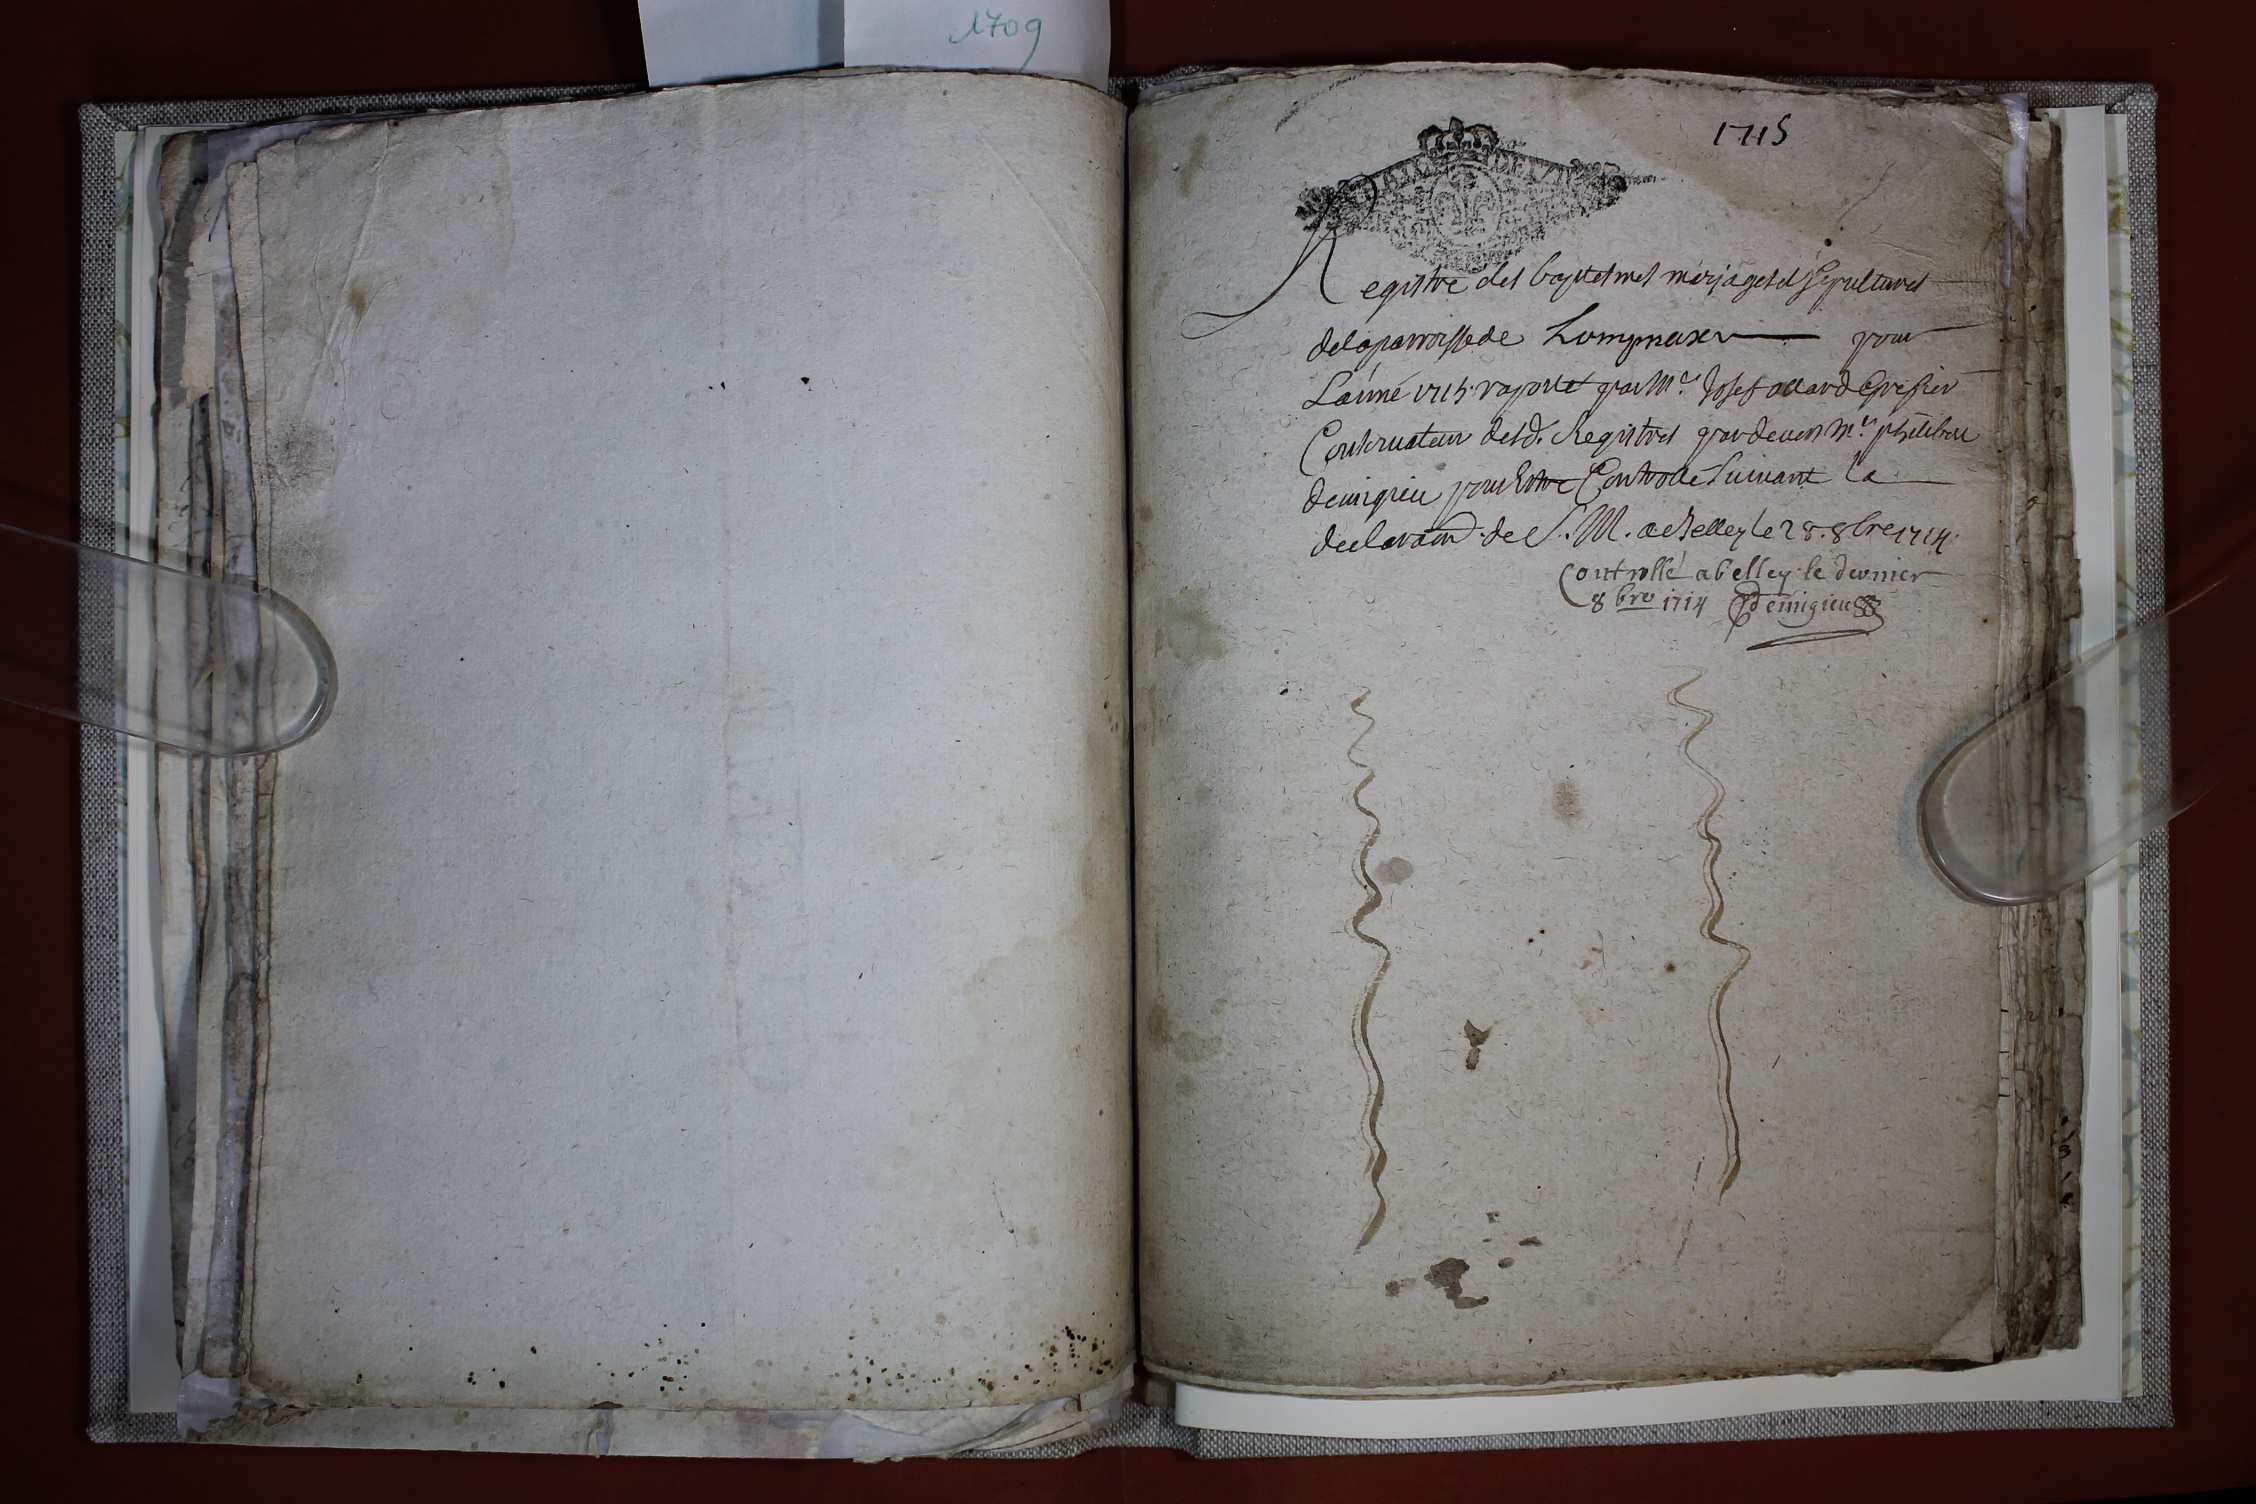 1709
1715
Registre des baptesmes mariages et Sepultures
dela parroisse de Lompnaxe pour
L'année 1715 raporté par Mr. Josef allard Grefier
Conseruateur desd. Registres par deuen Mr. philibert
demigieu pour Estre Controlle Suiuant la
declaraon. de S. M. a Belley le 28. 8bre 1714.
Controllé a belley le dernier
8bre 1714 Demigieu